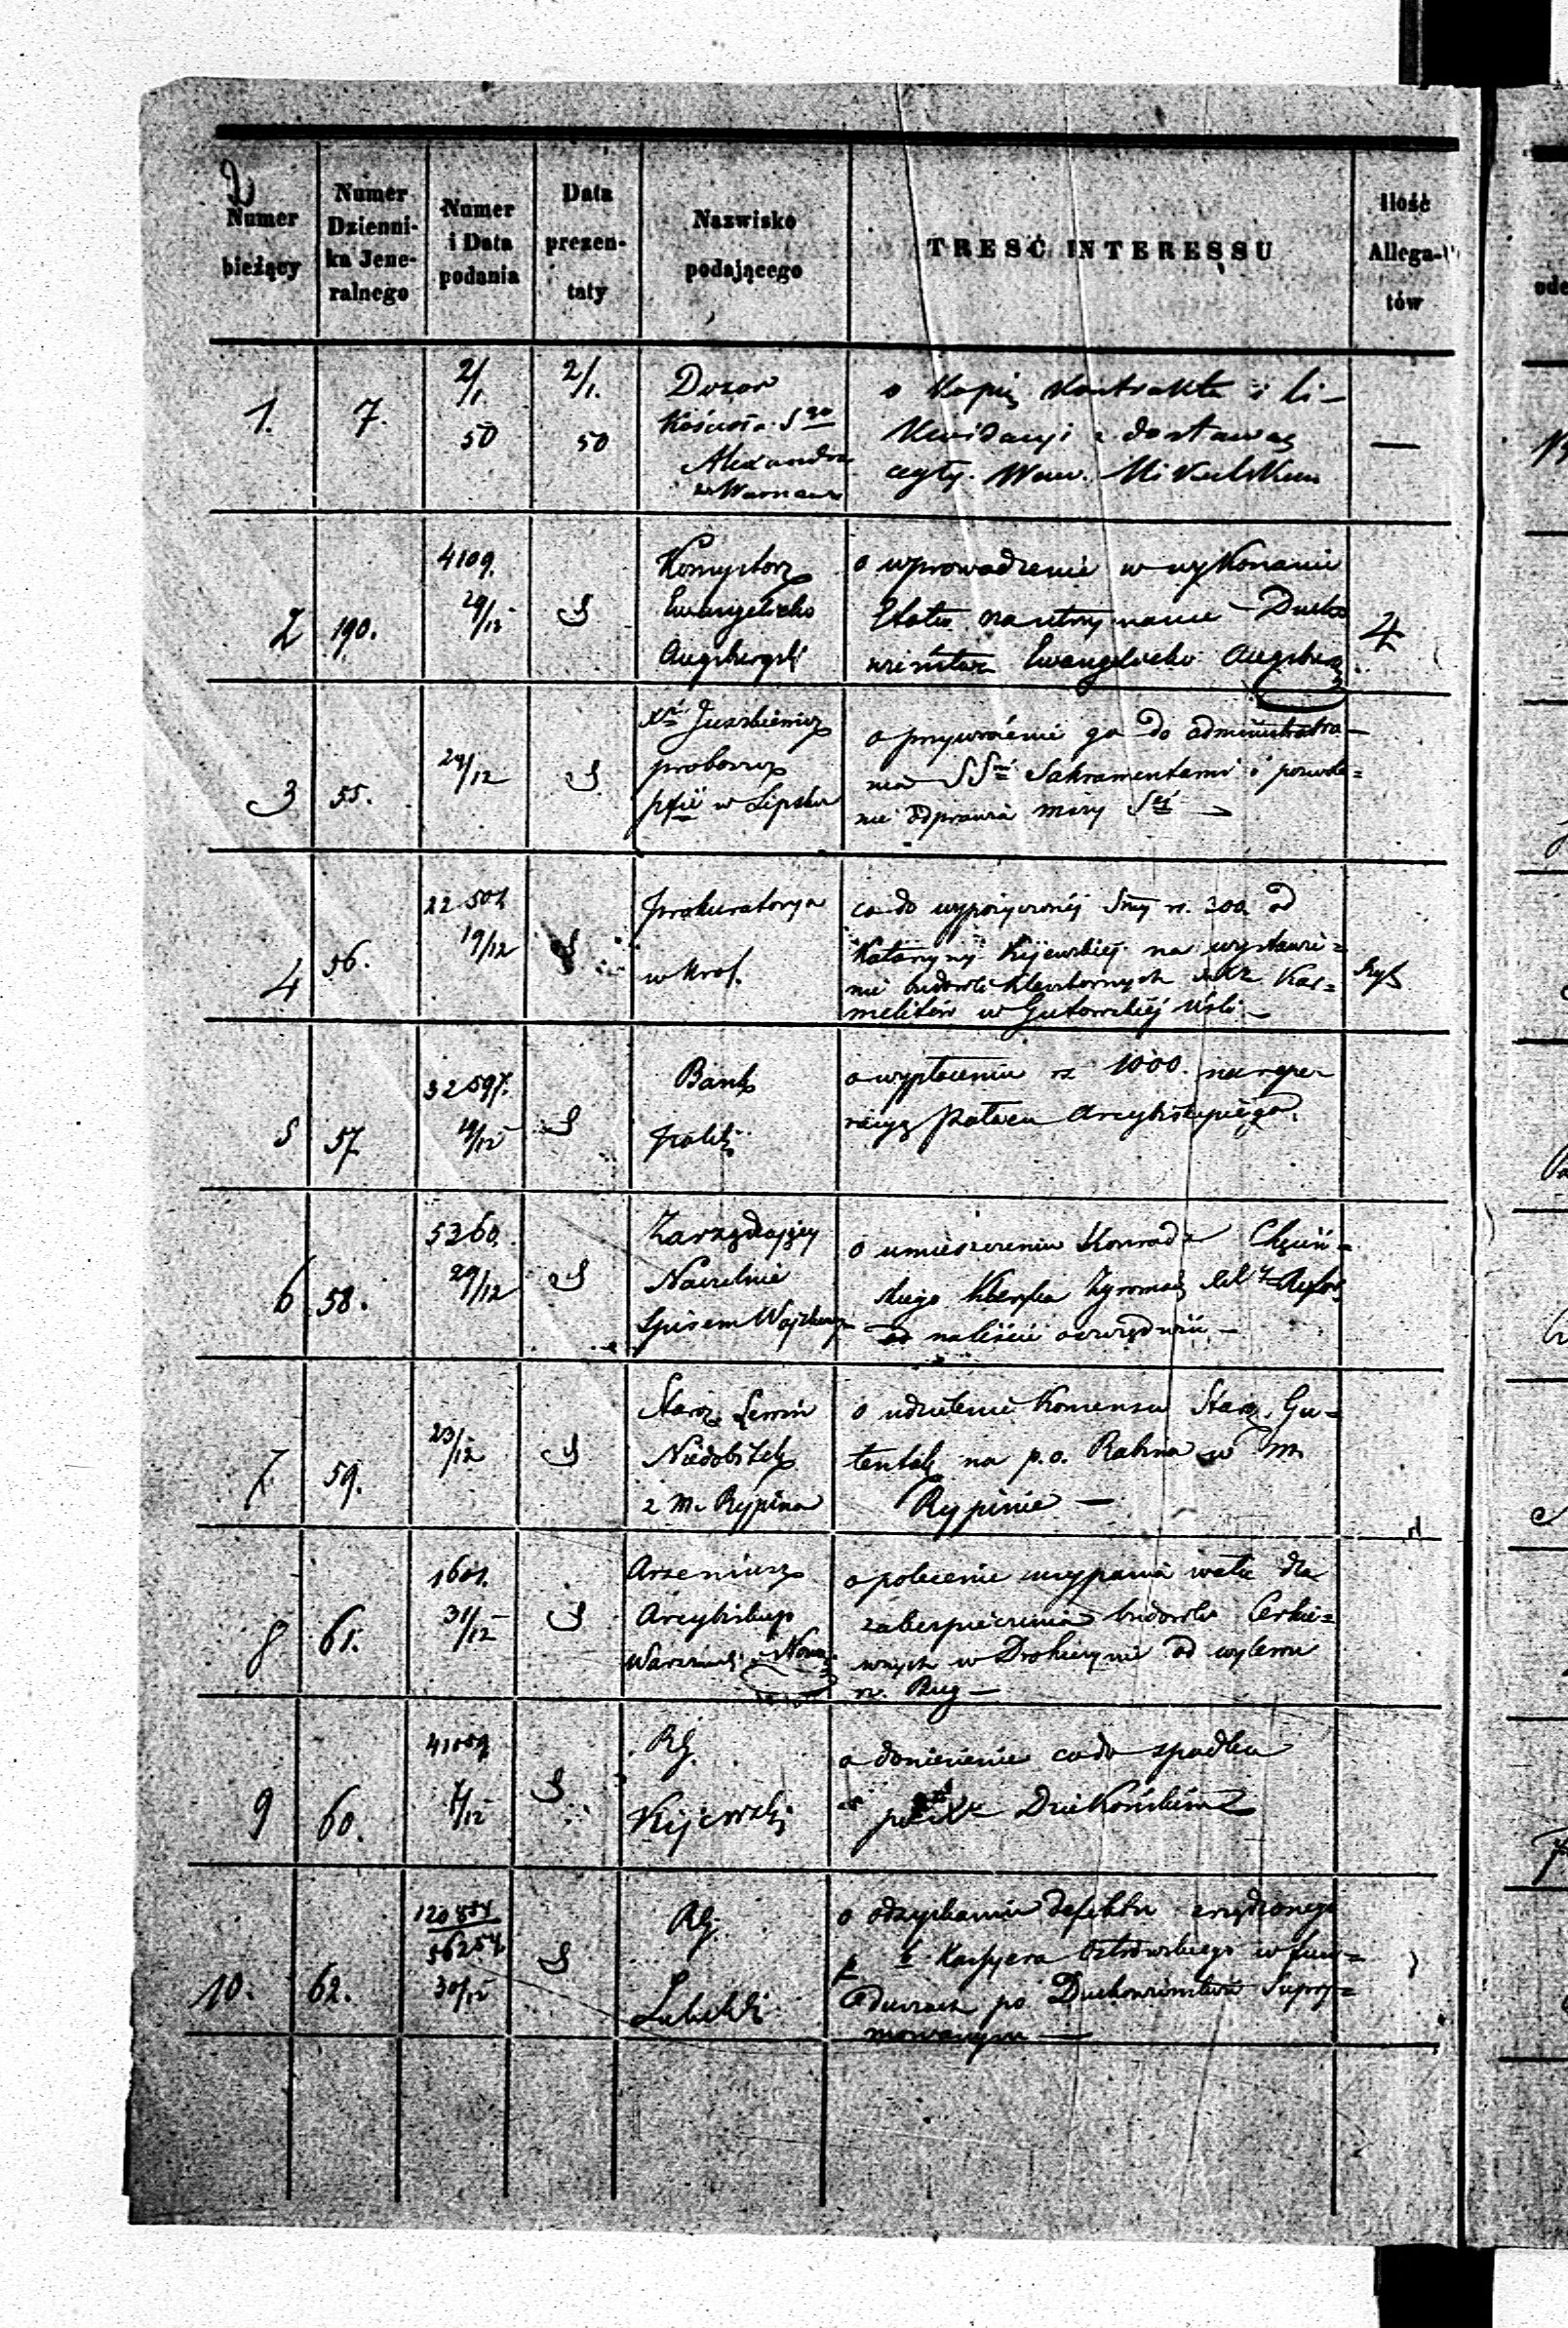 2
Numer bieżący
Numer Dzienni- ka Jene- ralnego
Numer i Data podania
Data prezen- taty
Nazwisko podającego
TREŚĆ INTERESSU
Ilość Allega- tów
1. 7. 2/1. 50 2/1. 50
Dozor
Kościoła Sgo
Alexandra
w Warszawie
o Kopię Kontraktu i li-
kwidacyi z dostawcą
cegły. Waw. Mikulskim
—
2 190. 4109. 29/12 S
Konsystorz
Ewangelicko
Augsburgski
o wprowadzenie w wykonanie
Etatu na utrzymanie Ducho
wieństwa Ewangelicko Augsburg
4
3 55. 24/12 S
Xa Juszkiewicz
proboszcz
pfii w Lipsku
o przywrócenie go do administrowa-
nia SSmi Sakramentami i pozwole=
nie odprawia mszy Sej —
4 56. 22507 19/12 S
Prokuratorya
w Krol.
co do wypożyczonéj Smy rs. 300 od
Katarzyny Kijewskiéj na wystawie=
nie budowli klasztornych XX. Kar=
melitów w Gutowskiéj Woli —
5 57 32597. 19/12 S
Bank
Polski
o wypłacenie rs 1000. na repe
racyę Pałacu Arcybiskupiego.
6 58. 5360. 29/12 S
Zarządzający
Naczelnie
Spisem Wojskowym
o umieszczenie Konrada Chęciń=
skiego Kleryka Zgromad.
na liście oczerędnéj —
7 59. 23/12 S
Staroz. Lewin
Niedobitek
z M. Rypina
o udzielenie Konsensu Staroz. Gu=
tentag na p.o. Rabina w M.
Rypinie —
8 61. 1601. 31/12 S
Arzeniusz
Arcybiskup
Warszawski i Nowog.
o polecenie usypania wału dla
zabezpieczenia budowli Cerkie=
wnych w Drohiczynie od wylewu
rz. Bug —
9 60. 41009 4/12 S
RG.
Kijewski
o doniesienie co do spadku
po Xz Dziekońskim
10. 62. 120484 56254 30/12 S
RG.
Lubelski
o odzyskanie defektu zrządzonego
p b. Kassyera Ostrowskiego w fun=
duszach po Duchowieństwie Supry=
mowanym —